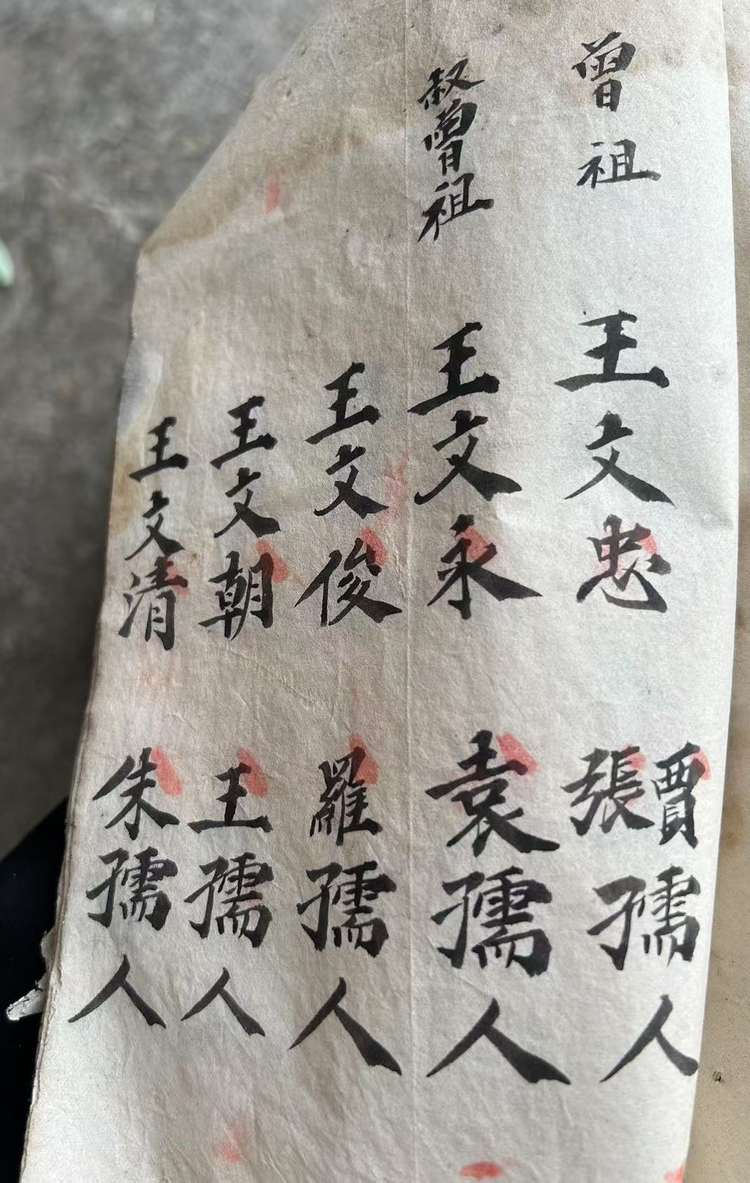 曾祖 王文忠 賈張孺人
叔曾祖 王文永 袁孺人
王文俊 羅孺人
王文朝 王孺人
王文清 朱孺人